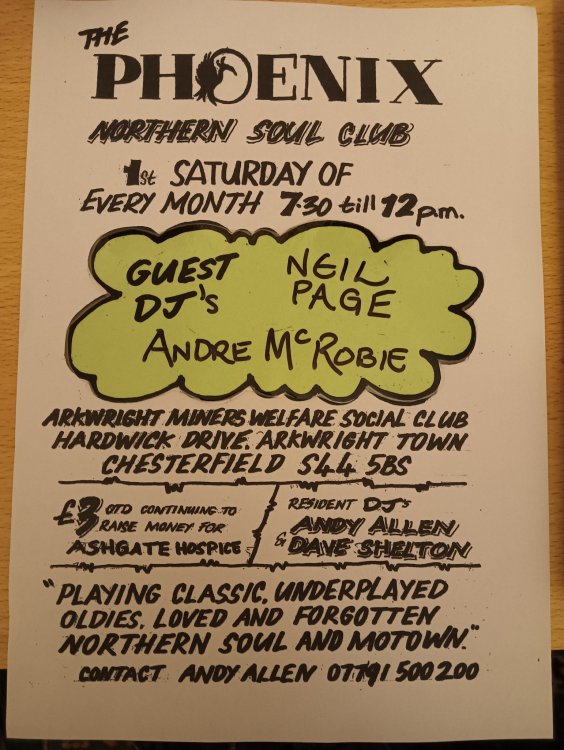 THE
PHOENIX
NORTHERN SOUL CLUB
1st SATURDAY OF
EVERY MONTH 7.30 till 12 p.m.
GUEST DJ's
NEIL PAGE
ANDRE McROBIE
ARKWRIGHT MINERS WELFARE SOCIAL CLUB
HARDWICK DRIVE. ARKWRIGHT TOWN
CHESTERFIELD S44 5BS
£3 OTD CONTINUING TO
RAISE MONEY FOR
ASHGATE HOSPICE
RESIDENT DJ's
ANDY ALLEN
& DAVE SHELTON
"PLAYING CLASSIC, UNDERPLAYED
OLDIES, LOVED AND FORGOTTEN
NORTHERN SOUL AND MOTOWN."
CONTACT ANDY ALLEN 07791 500 200